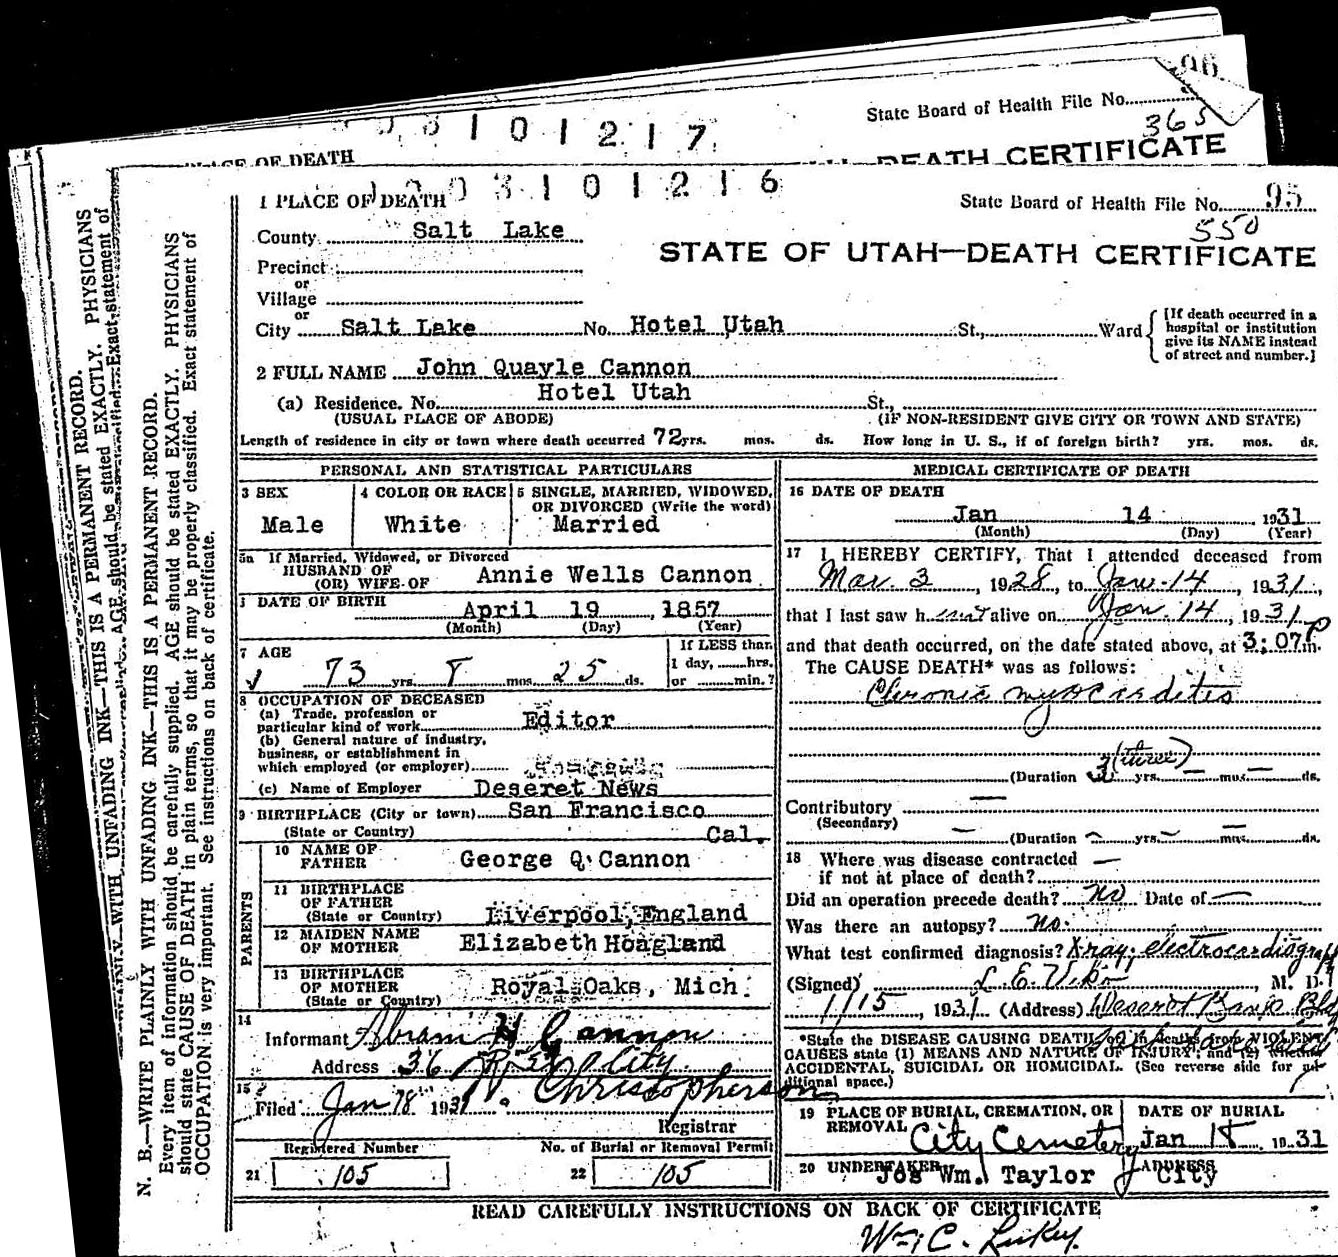 State Board of Health File No.
365
101217
OF DEATH
DEATH CERTIFICATE
3101216
1 PLACE OF DEATH
State Board of Health File No. 95
550
County Salt Lake
STATE OF UTAH—DEATH CERTIFICATE
Precinct
or
Village
or
City Salt Lake No. Hotel Utah St., Ward
[If death occurred in a hospital or institution give its NAME instead of street and number.]
2 FULL NAME John Quayle Cannon
Hotel Utah
(a) Residence. No. St.,
(USUAL PLACE OF ABODE) (IF NON-RESIDENT GIVE CITY OR TOWN AND STATE)
Length of residence in city or town where death occurred 72 yrs. mos. ds. How long in U. S., if of foreign birth? yrs. mos. ds.
PERSONAL AND STATISTICAL PARTICULARS
3 SEX
Male
4 COLOR OR RACE
White
5 SINGLE, MARRIED, WIDOWED,
OR DIVORCED (Write the word)
Married
5a If Married, Widowed, or Divorced
HUSBAND OF
(OR) WIFE OF Annie Wells Cannon
DATE OF BIRTH
April 19, 1857
(Month) (Day) (Year)
7 AGE
73 yrs. 8 mos. 25 ds.
If LESS than
1 day, ......hrs.
or ......min.?
8 OCCUPATION OF DECEASED
(a) Trade, profession or
particular kind of work Editor
(b) General nature of industry,
business, or establishment in
which employed (or employer)
(c) Name of Employer Deseret News
9 BIRTHPLACE (City or town) San Francisco
(State or Country) Cal.
PARENTS
10 NAME OF
FATHER George Q. Cannon
11 BIRTHPLACE
OF FATHER
(State or Country) Liverpool, England
12 MAIDEN NAME
OF MOTHER Elizabeth Hoagland
13 BIRTHPLACE
OF MOTHER
(State or Country) Royal Oaks, Mich.
14
Informant Abram H Cannon
Address City
15
Filed Jan 18 1931 Christopherson
Registrar
Registered Number
21 105
No. of Burial or Removal Permit
22 105
MEDICAL CERTIFICATE OF DEATH
16 DATE OF DEATH
Jan 14 1931
(Month) (Day) (Year)
17 I HEREBY CERTIFY, That I attended deceased from
Mar. 3, 1928, to Jan. 14, 1931,
that I last saw him alive on Jan. 14, 1931
and that death occurred, on the date stated above, at 3:07 P m.
The CAUSE DEATH* was as follows:
Chronic myocarditis
(three)
(Duration 3 yrs. — mos. — ds.
Contributory —
(Secondary)
— (Duration — yrs. — mos. — ds.
18 Where was disease contracted —
if not at place of death?
Did an operation precede death? No Date of —
Was there an autopsy? No.
What test confirmed diagnosis? X-ray; electrocardiograph
(Signed) L. E. Viko, M. D.
1/15, 1931 (Address) Deseret Bank Bldg
*State the DISEASE CAUSING DEATH, or in deaths from VIOLENT
CAUSES state (1) MEANS AND NATURE OF INJURY; and (2) whether
ACCIDENTAL, SUICIDAL OR HOMICIDAL. (See reverse side for ad-
ditional space.)
19 PLACE OF BURIAL, CREMATION, OR
REMOVAL City Cemetery
DATE OF BURIAL
Jan 18 1931
20 UNDERTAKER
Jos Wm. Taylor
ADDRESS
City
READ CAREFULLY INSTRUCTIONS ON BACK OF CERTIFICATE
Wm C.
N. B.—WRITE PLAINLY WITH UNFADING INK—THIS IS A PERMANENT RECORD.
Every item of information should be carefully supplied. AGE should be stated EXACTLY. PHYSICIANS
should state CAUSE OF DEATH in plain terms, so that it may be properly classified. Exact statement of
OCCUPATION is very important. See instructions on back of certificate.